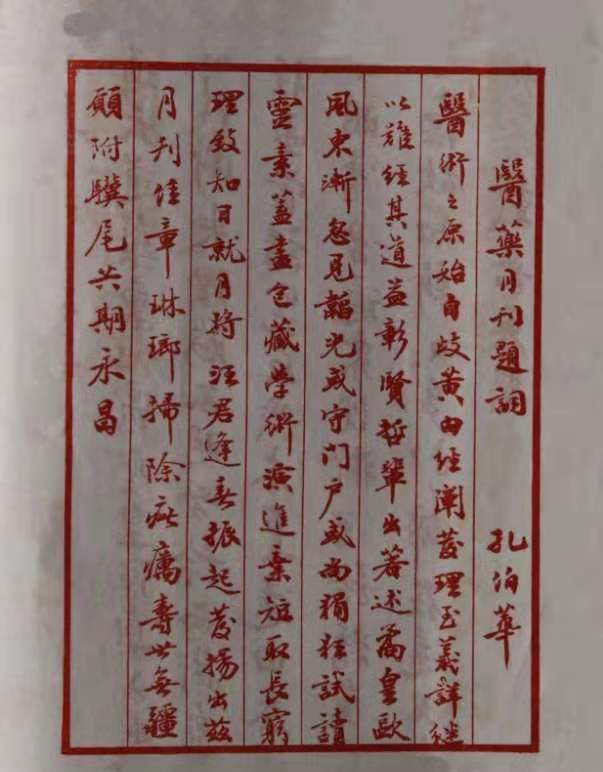 醫藥月刊題詞 孔伯華
醫術之原始自岐黃內經闡發理至義詳繼
以難經其道益彰賢哲輩出著述矞皇歐
風東漸忽見韜光或守門户或尚猖狂試讀
靈素蓋盡包藏學術演進棄短取長窮
理致知日就月將汪君逢春振起發揚出茲
月刊佳章琳瑯掃除疵癘壽世無疆
願附驥尾共期永昌